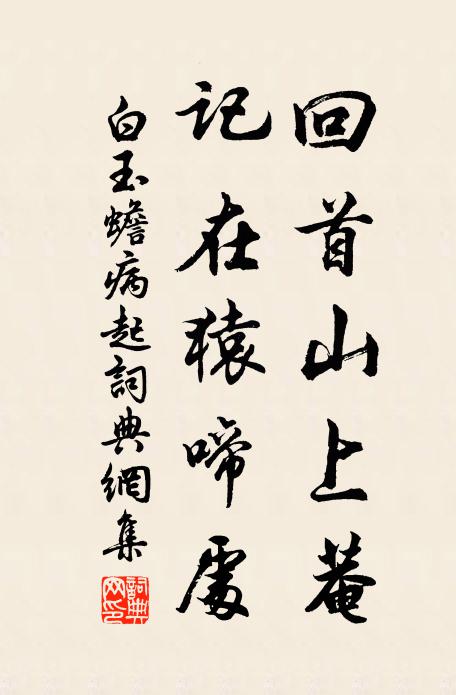 回首山上菴
記在猿啼處
白玉蟾病起詞典網集
詞典
網印